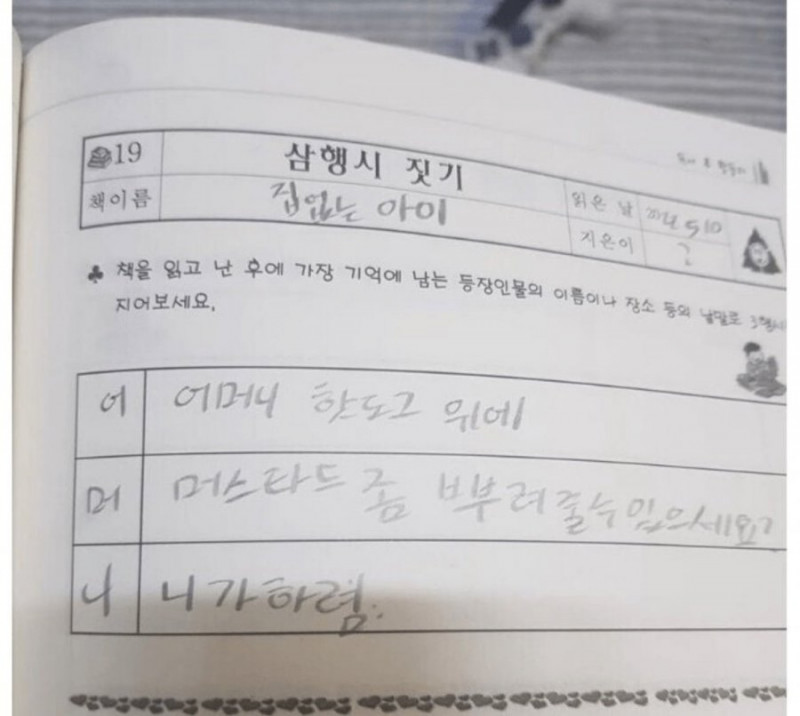 19 삼행시 짓기
책이름 집없는 아이
읽은 날
지은이 ?
책을 읽고 난 후에 가장 기억에 남는 등장인물의 이름이나 장소 등의 낱말로 3행시
지어보세요.
어 어머니 핫도그 위에
머 머스타드 좀 뿌려줄수있으세요?
니 니가하렴.